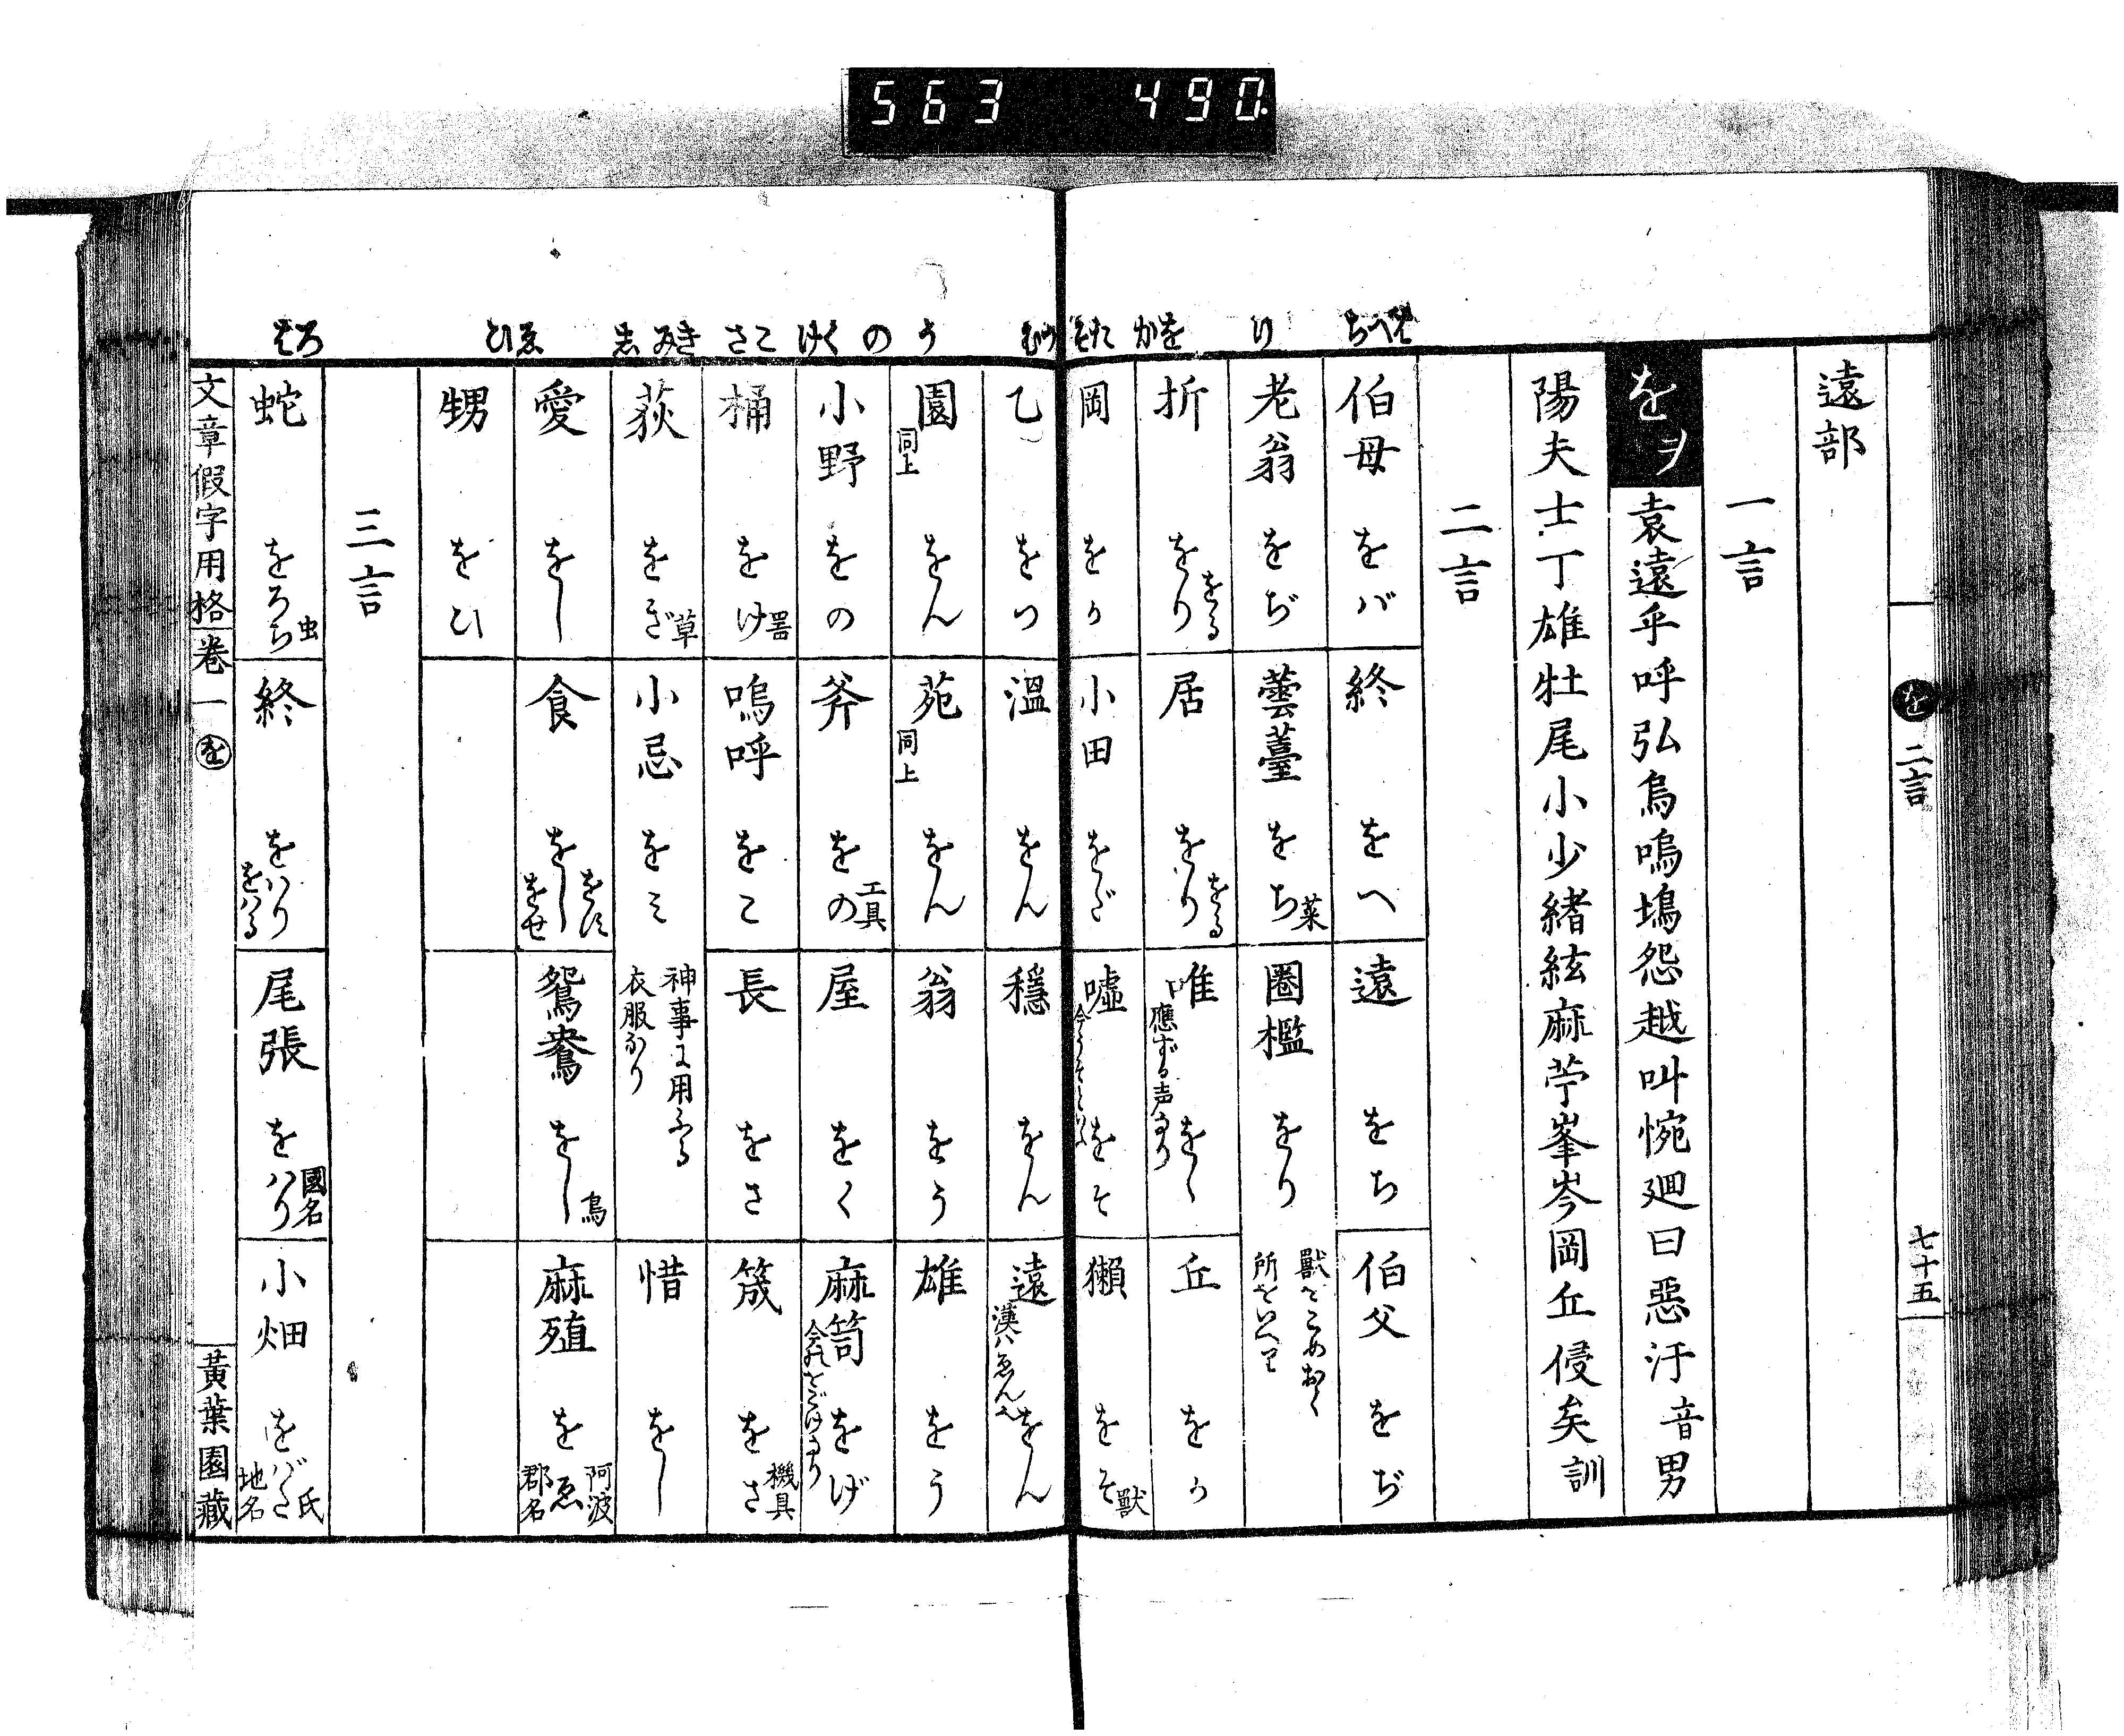 563 490
を 二言 七十五
遠部
一言
をヲ 袁遠乎呼弘烏嗚塢怨越叫惋廻曰惡汙音男
陽夫士丁雄牡尾小少緒絃麻苧峯岑岡丘侵矣訓
二言
伯母 をバ 終 をへ 遠 をち 伯父 をぢ
老翁 をぢ 蕓薹 をち 菜 圏檻 をり 獸をこめおく所をいへり
折 をり をる 居 をり をる 唯 應ずる声なり をゝ 丘 をか
岡 をか 小田 をだ 嘘 今うそといふ をそ 獺 をそ 獸
乙 をつ 溫 をん 穩 をん 遠 漢ハゑん也 をん
園 同上 をん 苑 同上 をん 翁 をう 雄 をう
小野 をの 斧 をの 工具 屋 をく 麻笥 をげ
桶 をけ 器 嗚呼 をこ 長 をさ 筬 をさ 機具
荻 をぎ 草 小忌 をミ 神事に用ふる衣服なり 惜 をし
愛 をし 食 をし をす をせ 鴛鴦 をし 鳥 麻殖 をゑ 阿波郡名
甥 をひ
三言
蛇 をろち 虫 終 をハり をハる 尾張 をハり 國名 小畑 をバた 氏 地名
文章假字用格 卷一 を 黃葉園藏